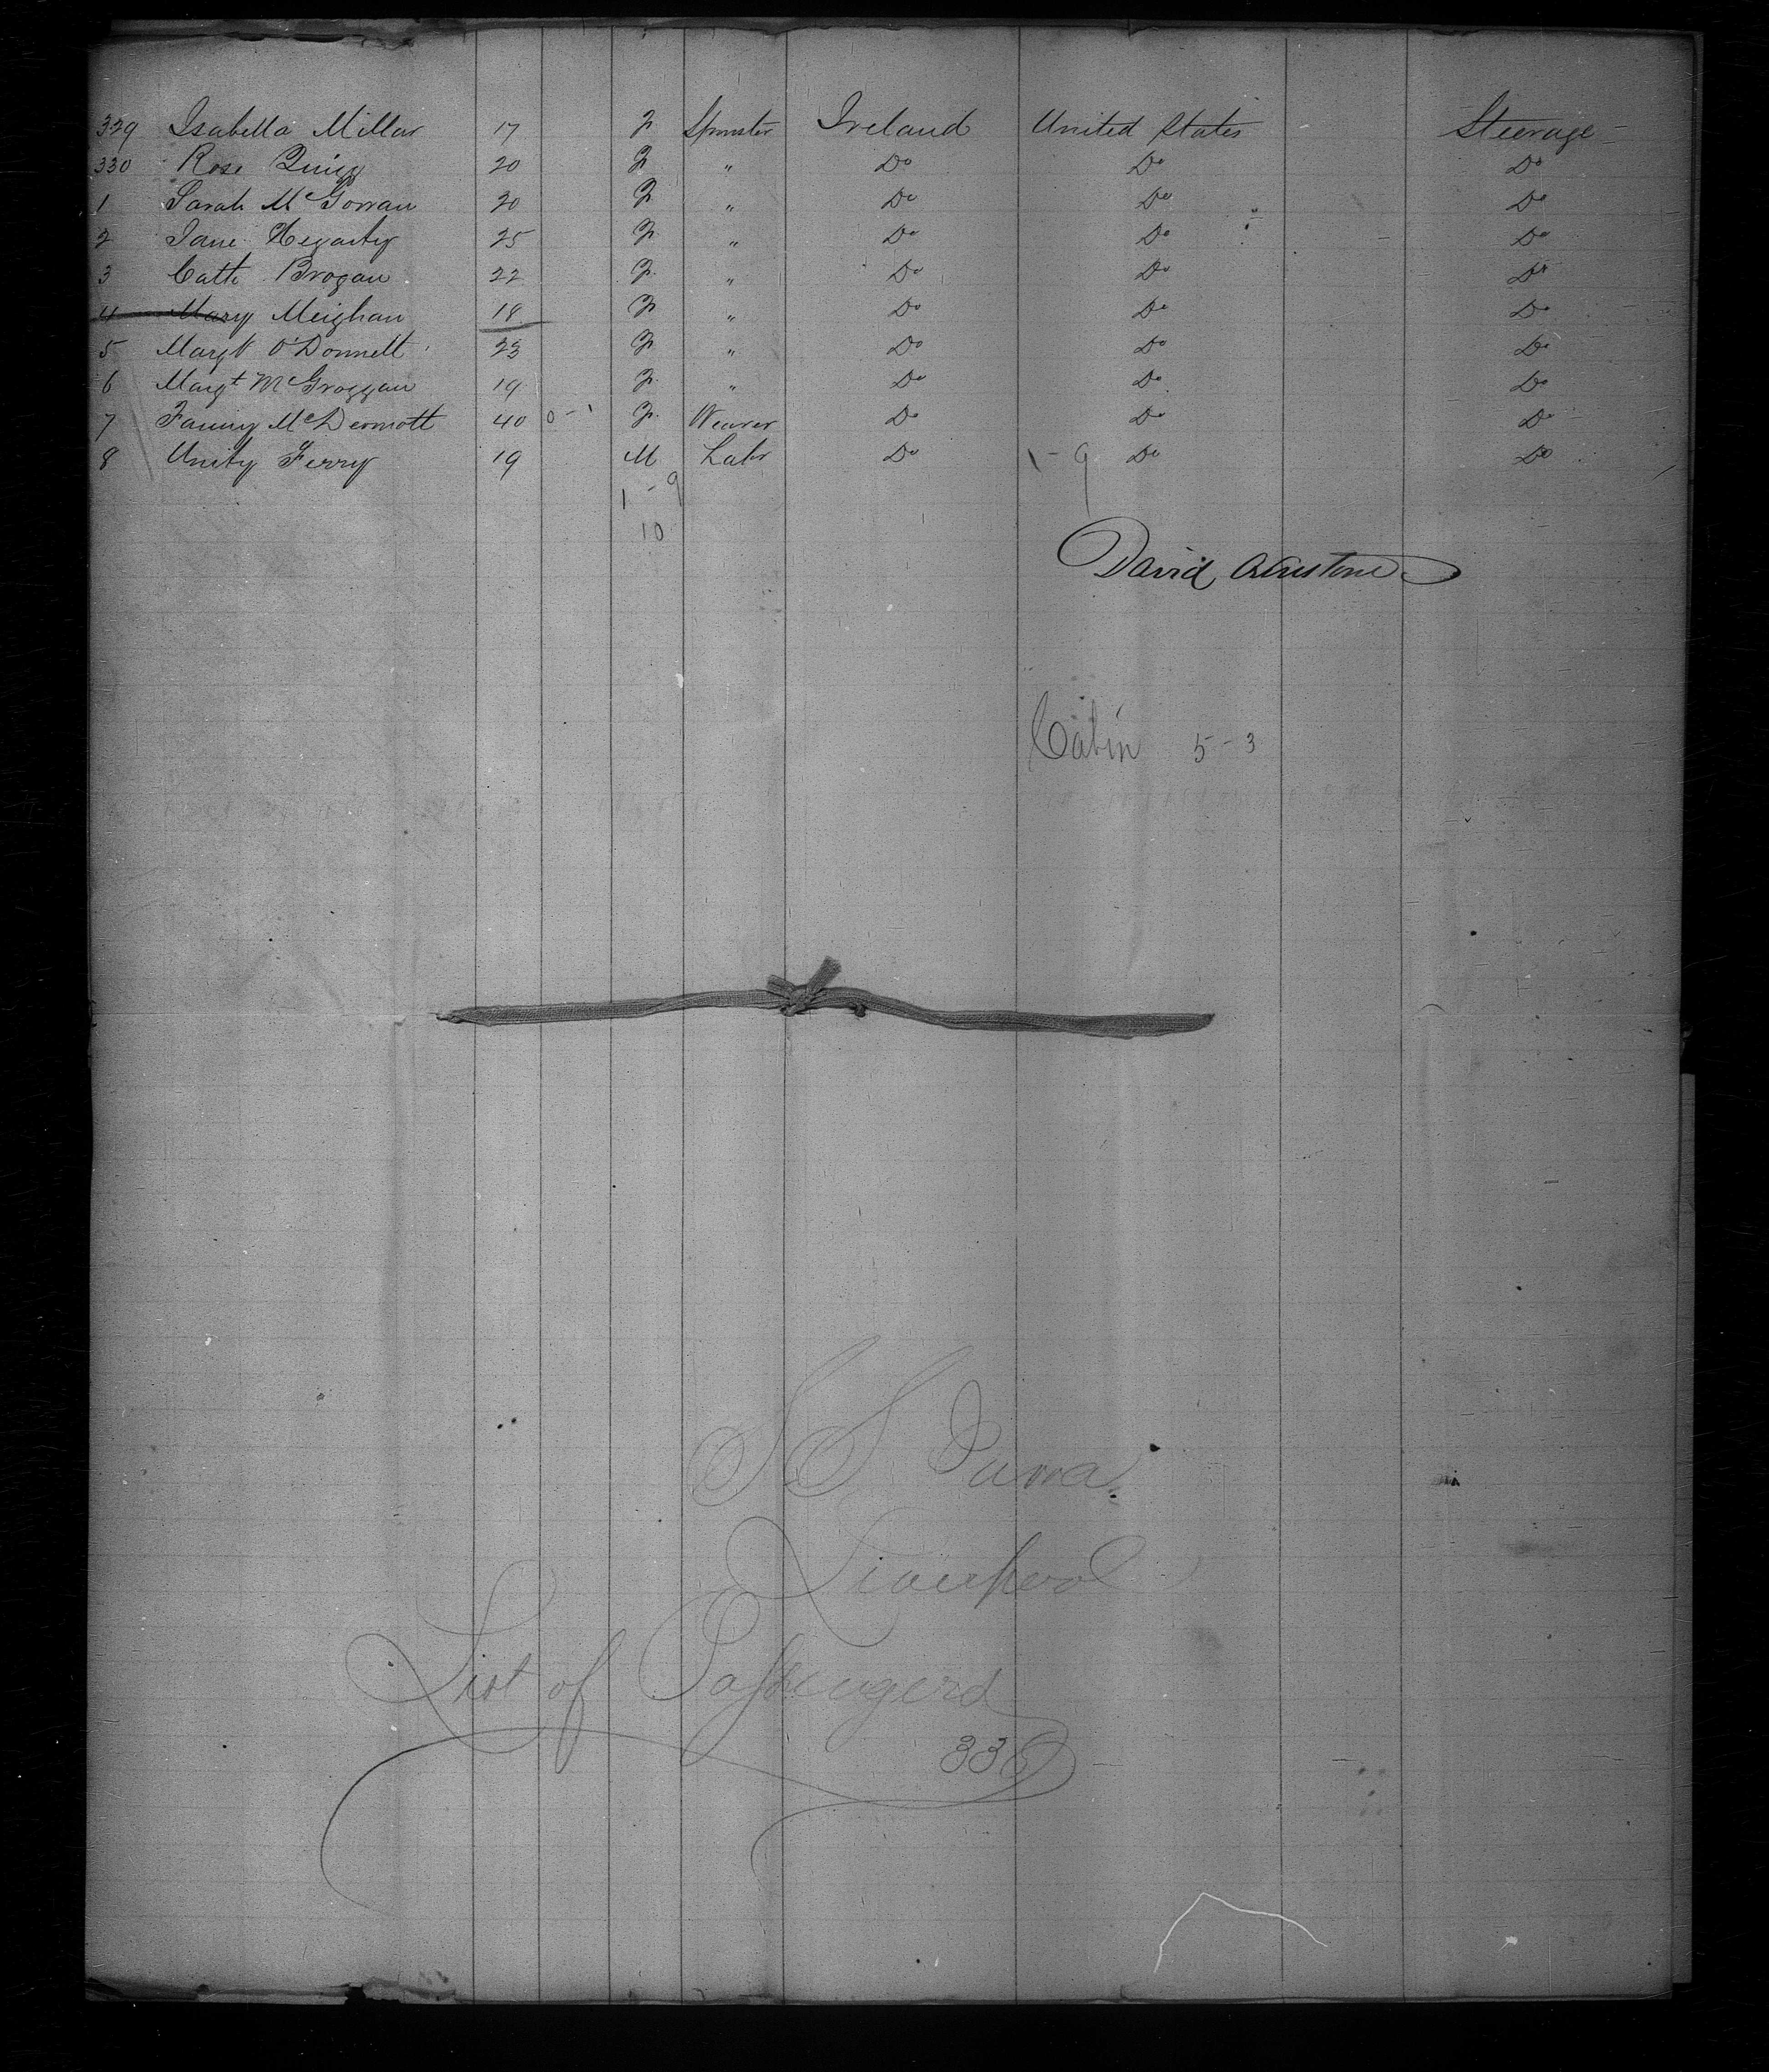 329 Isabella Millar 17 F Spinster Ireland United States Steerage
330 Rose Quigg 20 F " Do Do Do
1 Sarah McGowan 20 F " Do Do Do
2 Jane Hegarty 25 F " Do Do Do
3 Cathe Brogan 22 F " Do Do Do
4 Mary Meighan 18 F " Do Do Do
5 Margt O'Donnell 23 F " Do Do Do
6 Margt McGroggan 19 F " Do Do Do
7 Fanny McDermott 40 0-1 F Weaver Do Do Do
8 Unity Ferry 19 M Labr Do 1-9 Do Do
1-9
10
David
Cabin 5-3
SS
Liverpool
List of Passengers
338